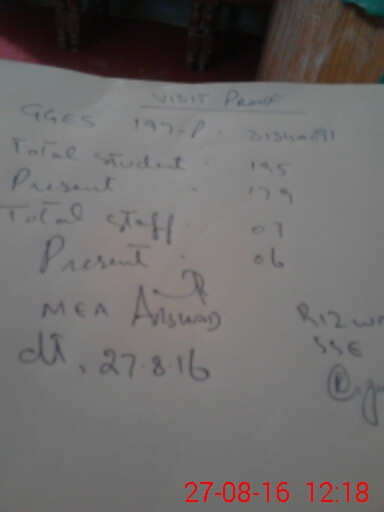 VISIT PROOF
GGES 197-P. 31340091
Total Student . 195
Present . 179
Total Staff . 07
Present . 06
MEA Arshad
dt, 27.8.16
SSE
27-08-16 12:18